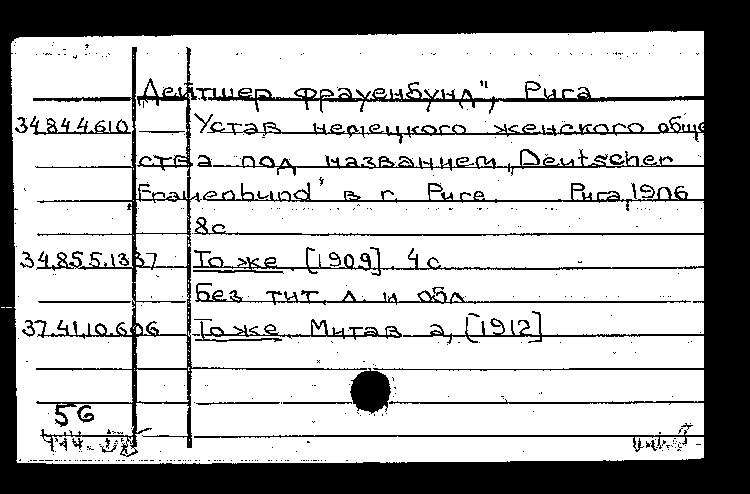 „Дейтшер фрауенбунд", Рига
34.84.4.610 Устав немецкого женского обще
ства под названием „Deutscher
Frauenbund" в г. Риге. Рига, 1906
8с.
34.85.5.1337 То же. [1909]. 4с.
Без тит. л. и обл.
37.41.10.606 То же. Митава, [1912]
56